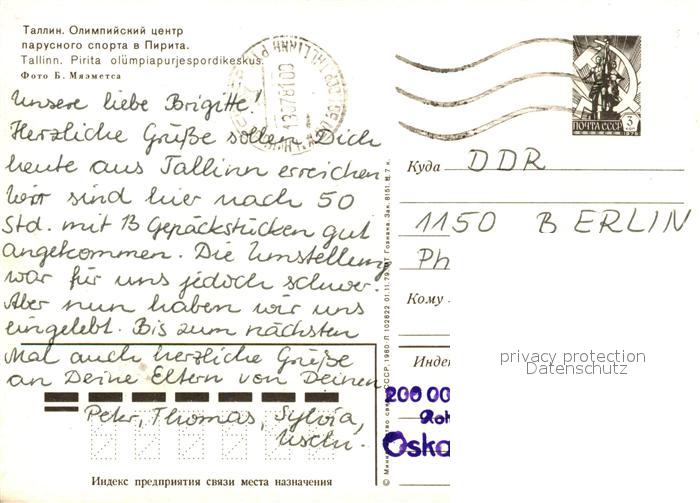 Таллин. Олимпийский центр
парусного спорта в Пирита.
Tallinn. Pirita olümpiapurjespordikeskus.
Фото Б. Мяэметса
Unsere liebe Brigitte!
Herzliche Grüße sollen Dich
heute aus Tallinn erreichen.
Wir sind hier nach 50
Std. mit 13 Gepäckstücken gut
angekommen. Die Umstellung
war für uns jedoch schwer.
Aber nun haben wir uns
eingelebt. Bis zum nächsten
Mal auch herzliche Grüße
an Deine Eltern von Deinen
Peter, Thomas, Sylvia,
Uschi.
Индекс предприятия связи места назначения
ПОЧТА СССР
3
1976
Куда DDR
1150 BERLIN
Ph
Кому
Индек
200 00
Oska
© Министерство связи СССР, 1980
privacy protection
Datenschutz